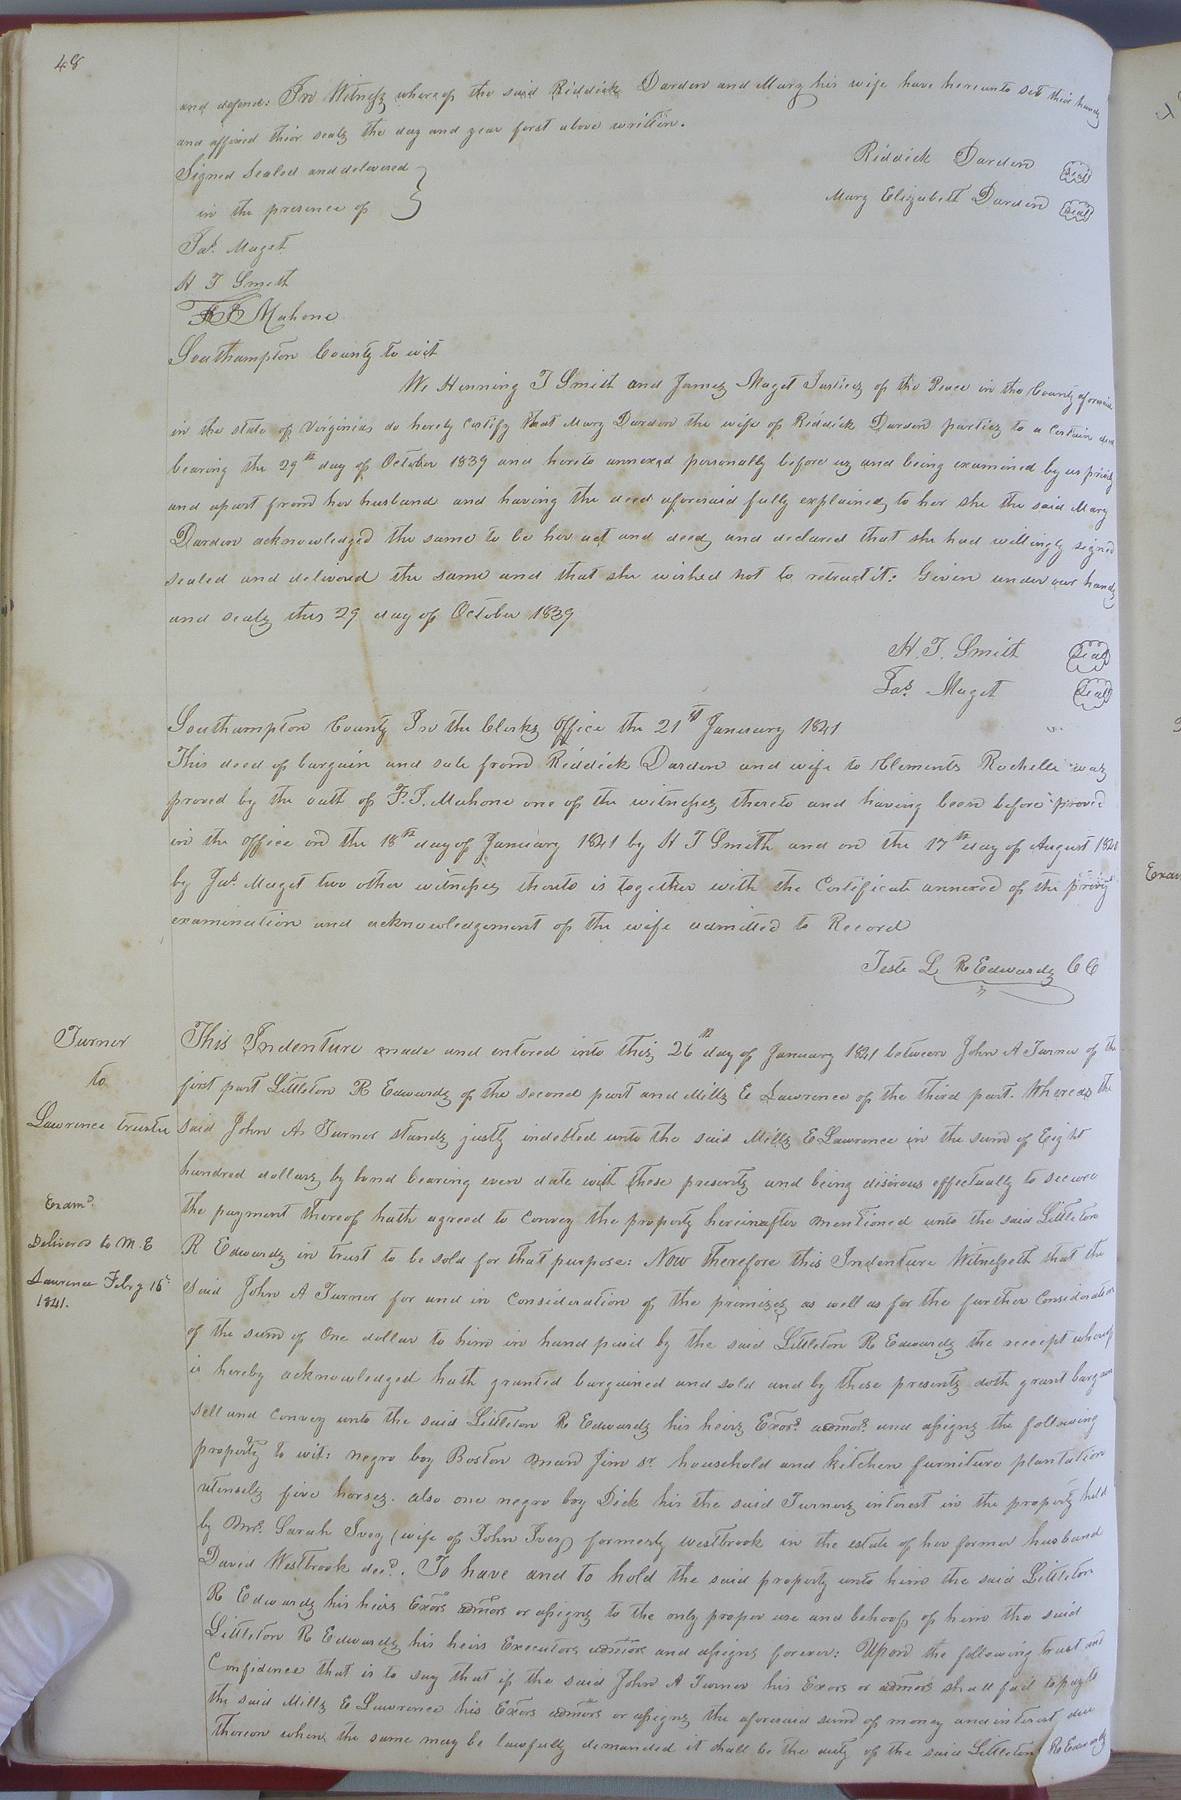 48
and defend: In Witness whereof the said Riddick Darden and Mary his wife have hereunto set their hands
and affixed their seals the day and year first above written.
Signed Sealed and delivered
in the presence of
Riddick Darden Seal
Mary Elizabeth Darden Seal
Jas. Maget
H T Smith
Mahone
Southampton County to wit
We Henning T Smith and James Maget Justices of the Peace in the County aforesaid
in the state of Virginia do hereby Certify that Mary Darden the wife of Riddick Darden parties to a Certain deed
bearing the 29th day of October 1839 and hereto annexed personally before us and being examined by us privily
and apart from her husband and having the deed aforesaid fully explained to her she the said Mary
Darden acknowledged the same to be her act and deed and declared that she had willingly signed
sealed and delivered the same and that she wished not to retract it: Given under our hands
and seals this 29 day of October 1839
H. T. Smith Seal
Jas. Maget Seal
Southampton County In the Clerks Office the 21st January 1841
This deed of bargain and sale from Riddick Darden and wife to Clements Rochelle was
proved by the oath of F. J. Mahone one of the witnesses thereto and having been before proved
in the office on the 18th day of January 1841 by H T Smith and on the 17th day of August 1840
by Jas. Maget two other witnesses thereto is together with the Certificate annexed of the privy
examination and acknowledgement of the wife admitted to Record
Teste L R Edwards CC
Turner
to
Lawrence trustee
Examd.
Delivered to M. E
Lawrence Feby 16th
1841.
This Indenture made and entered into this 26th day of January 1841 between John A Turner of the
first part Littleton R Edwards of the second part and Mills E Lawrence of the third part. Whereas the
said John A Turner stands justly indebted unto the said Mills E Lawrence in the sum of Eight
hundred dollars by bond bearing even date with these presents and being disirous effectually to secure
the payment thereof hath agreed to Convey the property hereinafter mentioned unto the said Littleton
R Edwards in trust to be sold for that purpose: Now Therefore this Indenture Witnesseth that the
said John A Turner for and in Consideration of the premises as well as for the further Consideration
of the sum of One dollar to him in hand paid by the said Littleton R Edwards the receipt whereof
is hereby acknowledged hath granted bargained and sold and by these presents doth grant bargain
sell and Convey unto the said Littleton R Edwards his heirs Exors. admors. and assigns the following
property to wit: negro boy Boston man Jim sr. household and kitchen furniture plantation
utensils five horses. also one negro boy Dick his the said Turners interest in the property held
by Mrs. Sarah Ivey (wife of John Ivey) formerly westbrook in the estate of her former husband
David Westbrook decd. To have and to hold the said property unto him the said Littleton
R Edwards his heirs Exors admors or assigns to the only proper use and behoof of him the said
Littleton R Edwards his heirs Executors admors and assigns forever: Upon the following trust and
Confidence that is to say that if the said John A Turner his Exors or admors shall fail to pay to
the said Mills E Lawrence his Exors admors or assigns the aforesaid sum of money and interest due
thereon when the same may be lawfully demanded it shall be the duty of the said Littleton R Edwards